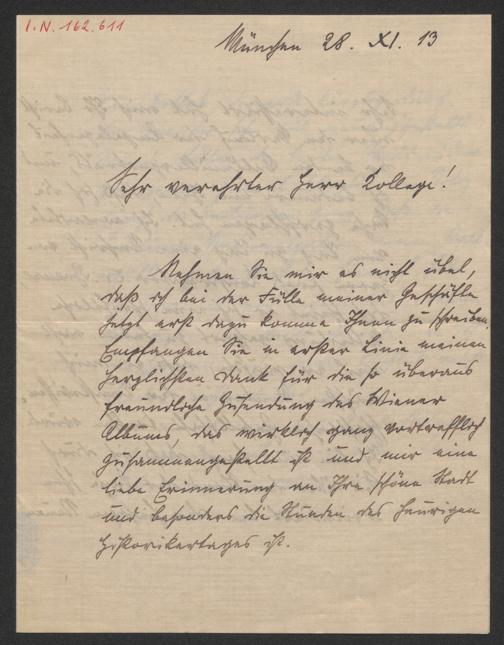 I.N. 162.611
München 28. XI. 13
Sehr verehrter Herr College!
Nehmen Sie mir es nicht übel,
daß ich bei der Fülle meiner Geschäfte
jetzt erst dazu komme Ihnen zu schreiben.
Empfangen Sie in erster Linie meinen
herzlichsten Dank für die so überaus
freundliche Zusendung des Wiener
Albums, das wirklich ganz vortrefflich
zusammengestellt ist und mir eine
liebe Erinnerung an Ihre schöne Stadt
und besonders die Stunden des heurigen
Historikertages ist.